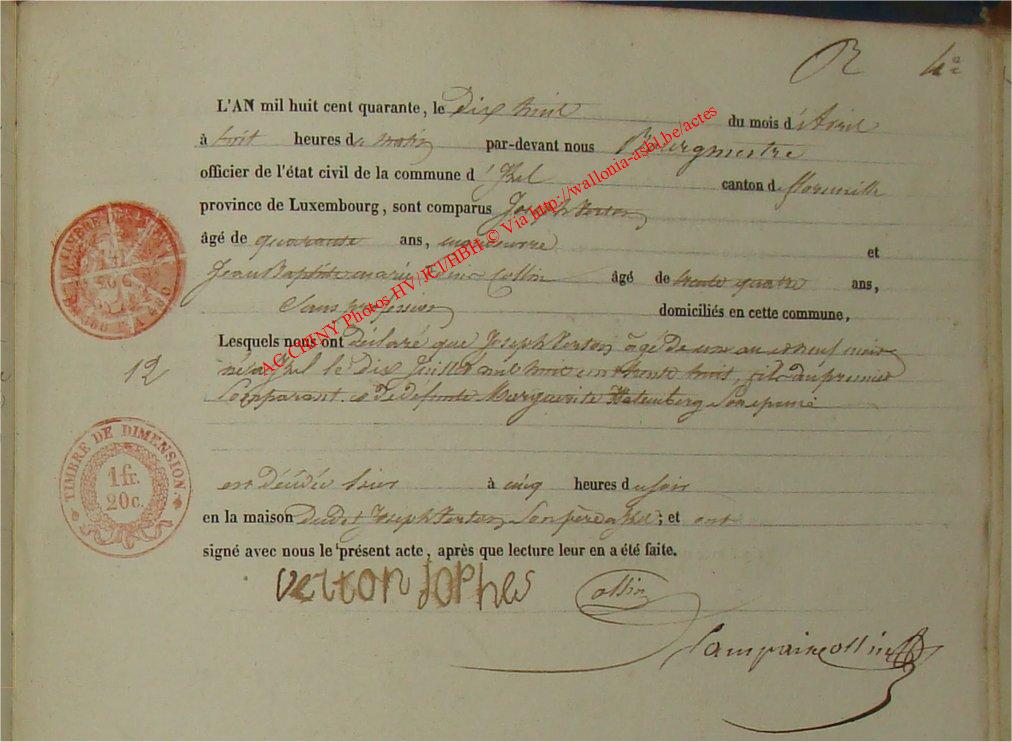 R 4
L'AN mil huit cent quarante, le Dix huit du mois d'Avril
à huit heures du matin par-devant nous Bourgmestre
officier de l'état civil de la commune d'Izel canton de florenville
province de Luxembourg, sont comparus Joseph Verton
âgé de quarante ans, manœuvre et
Jean Baptiste marie Collin âgé de trente quatre ans,
Sans profession domiciliés en cette commune,
Lesquels nous ont Déclaré que Joseph Verton âgé De un an et neuf mois
né a Izel le Dix Juillet mil huit cent trente huit, fils du premier
Comparant et De défunte Marguerite Watenberg Son épouse
12
est Décédé hier à cinq heures du soir
en la maison Dudit Joseph Verton Son père a Izel; et ont
signé avec nous le présent acte, après que lecture leur en a été faite.
verton Jophes Collin
Lampaircollin
TIMBRE DE DIMENSION
1 fr.
20 c.
AG-CHINY Photos HV/JCl/HBH © Via http://wallonia-asbl.be/actes